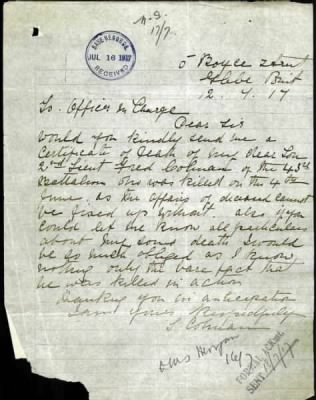 BASE RECORDS
JUL 16 1917
RECEIVED
17/7
5 Boyce Street
Glebe Point
12.7.17
To Officer in Charge
Dear Sir
Would you kindly send me a
Certificate of Death of my Dear Son
2nd Lieut Fred Coleman of the 45th
Battalion who was killed on the 4th
June. as the affairs of deceased cannot
be fixed up without. also if you
could let me know all particulars
about my sons death I would
be so much obliged as I know
nothing only the bare fact that
he was killed in action
Thanking you in anticipation
I am yours Respectfully
Coleman
16/7
FORMAL ACKN.
SENT